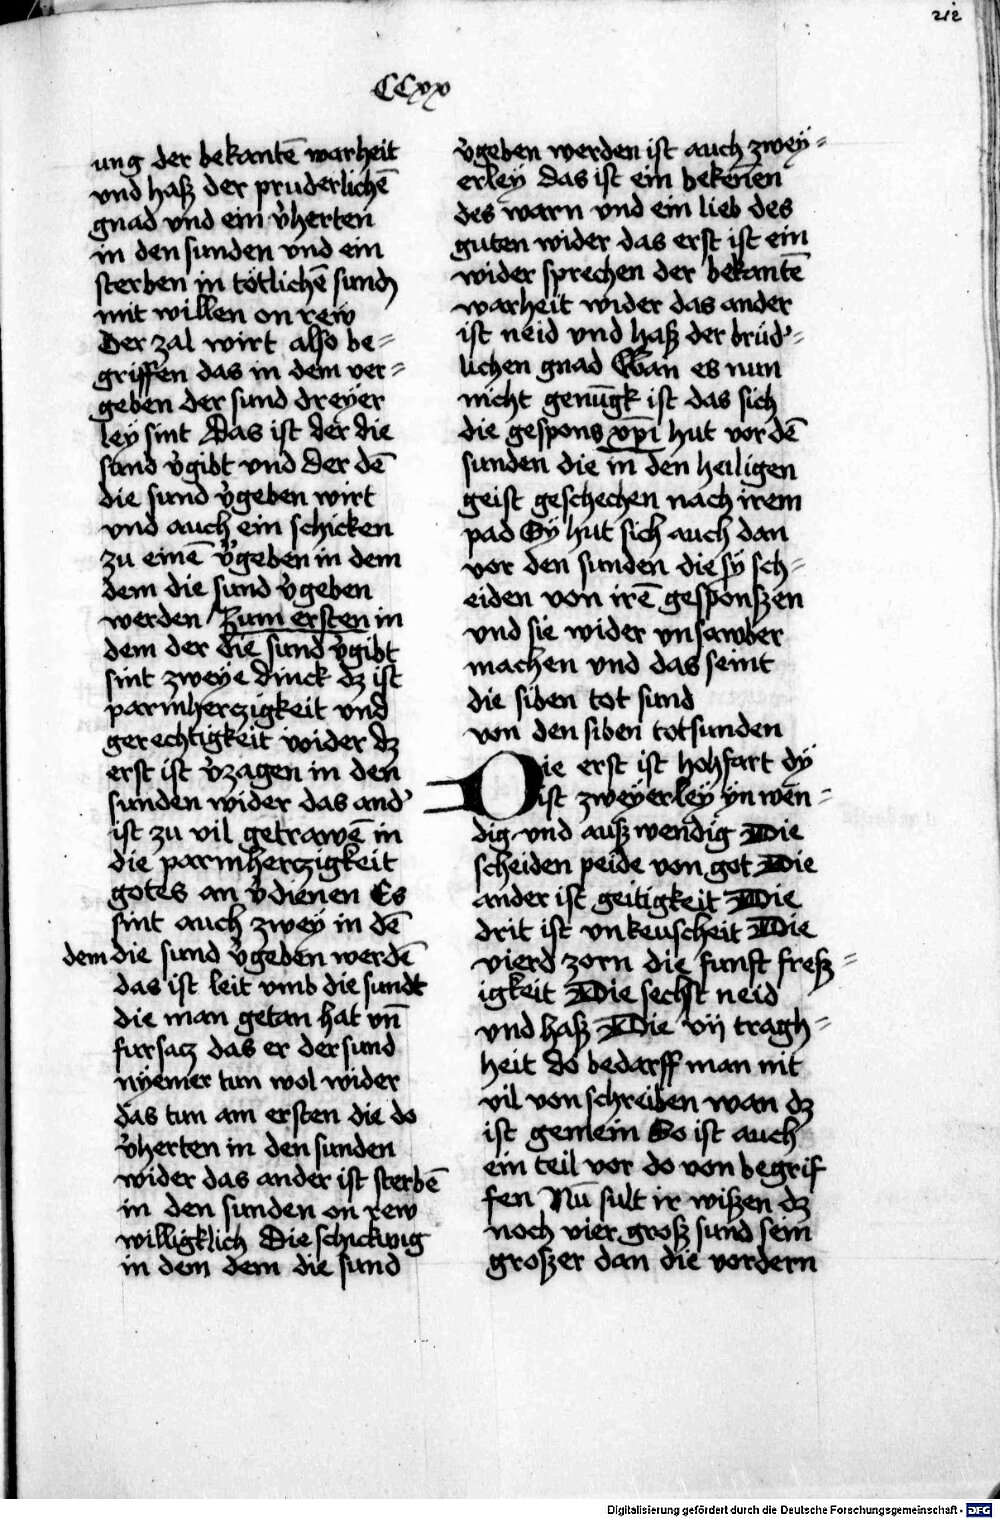 212
CCxx
ung der bekantē warheit
vnd haß der pruderlichē
gnad vnd ein v̉herten
in den sunden vnd ein
sterben in tötlichē sundn
mit willen on rew
Der zal wirt also be=
griffen das in dem ver=
geben der sund dreyer
ley sint Das ist der die
sund v̉gibt vnd der dē
die sund v̉geben wirt
vnd auch ein schicken
zu einē v̉geben in dem
dem die sund v̉geben
werden / Zum ersten in
dem der die sund v̉gibt
sint zweye dinck dz ist
parmherczigkeit vnd
gerechtigkeit wider dz
erst ist v̉zagen in den
sunden wider das and̉
ist zu vil getrawē in
die parmherczigkeit
gotes an v̉dienen Es
sint auch zwey in dē
dem die sund v̉geben werdē
das ist leit vmb die sundt
die man getan hat vn̄
fursacz das er der sund
nyemer tun wol wider
das tun am ersten die do
v̉herten in den sunden
wider das ander ist sterbē
in den sunden on rew
willigklich Die schickung
in dem dem die sund
v̉geben werden ist auch zwey=
erley Das ist ein bekenēn
des warn vnd ein lieb des
guten wider das erst ist ein
wider sprechen der bekantē
warheit wider das ander
ist neid vnd haß der brüd̉=
lichen gnad Wan es nun
nicht genūgk ist das sich
die gespons xp̄i hut vor dē
sunden die in den heiligen
geist geschechen nach irem
pad Sy hut sich auch dan
vor den sunden die sy sch=
eiden von irē gesponßen
vnd sie wider vnsawber
machen vnd das seint
die siben tot sund
von den siben totsunden
Die erst ist hohfart dy
ist zweyerley ynwen=
dig vnd außwendig Die
scheiden peide von got Die
ander ist geitigkeit Die
drit ist vnkeuscheit Die
vierd zorn die funft freß=
igkeit Die sechst neid
vnd haß Die vij tragh=
heit do bedarff man nit
vil von schreiben wan dz
ist gemein So ist auch
ein teil vor do von begrif
fen Nū sult ir wißen dz
noch vier groß sund sein
großer dan die vordern
Digitalisierung gefördert durch die Deutsche Forschungsgemeinschaft - DFG